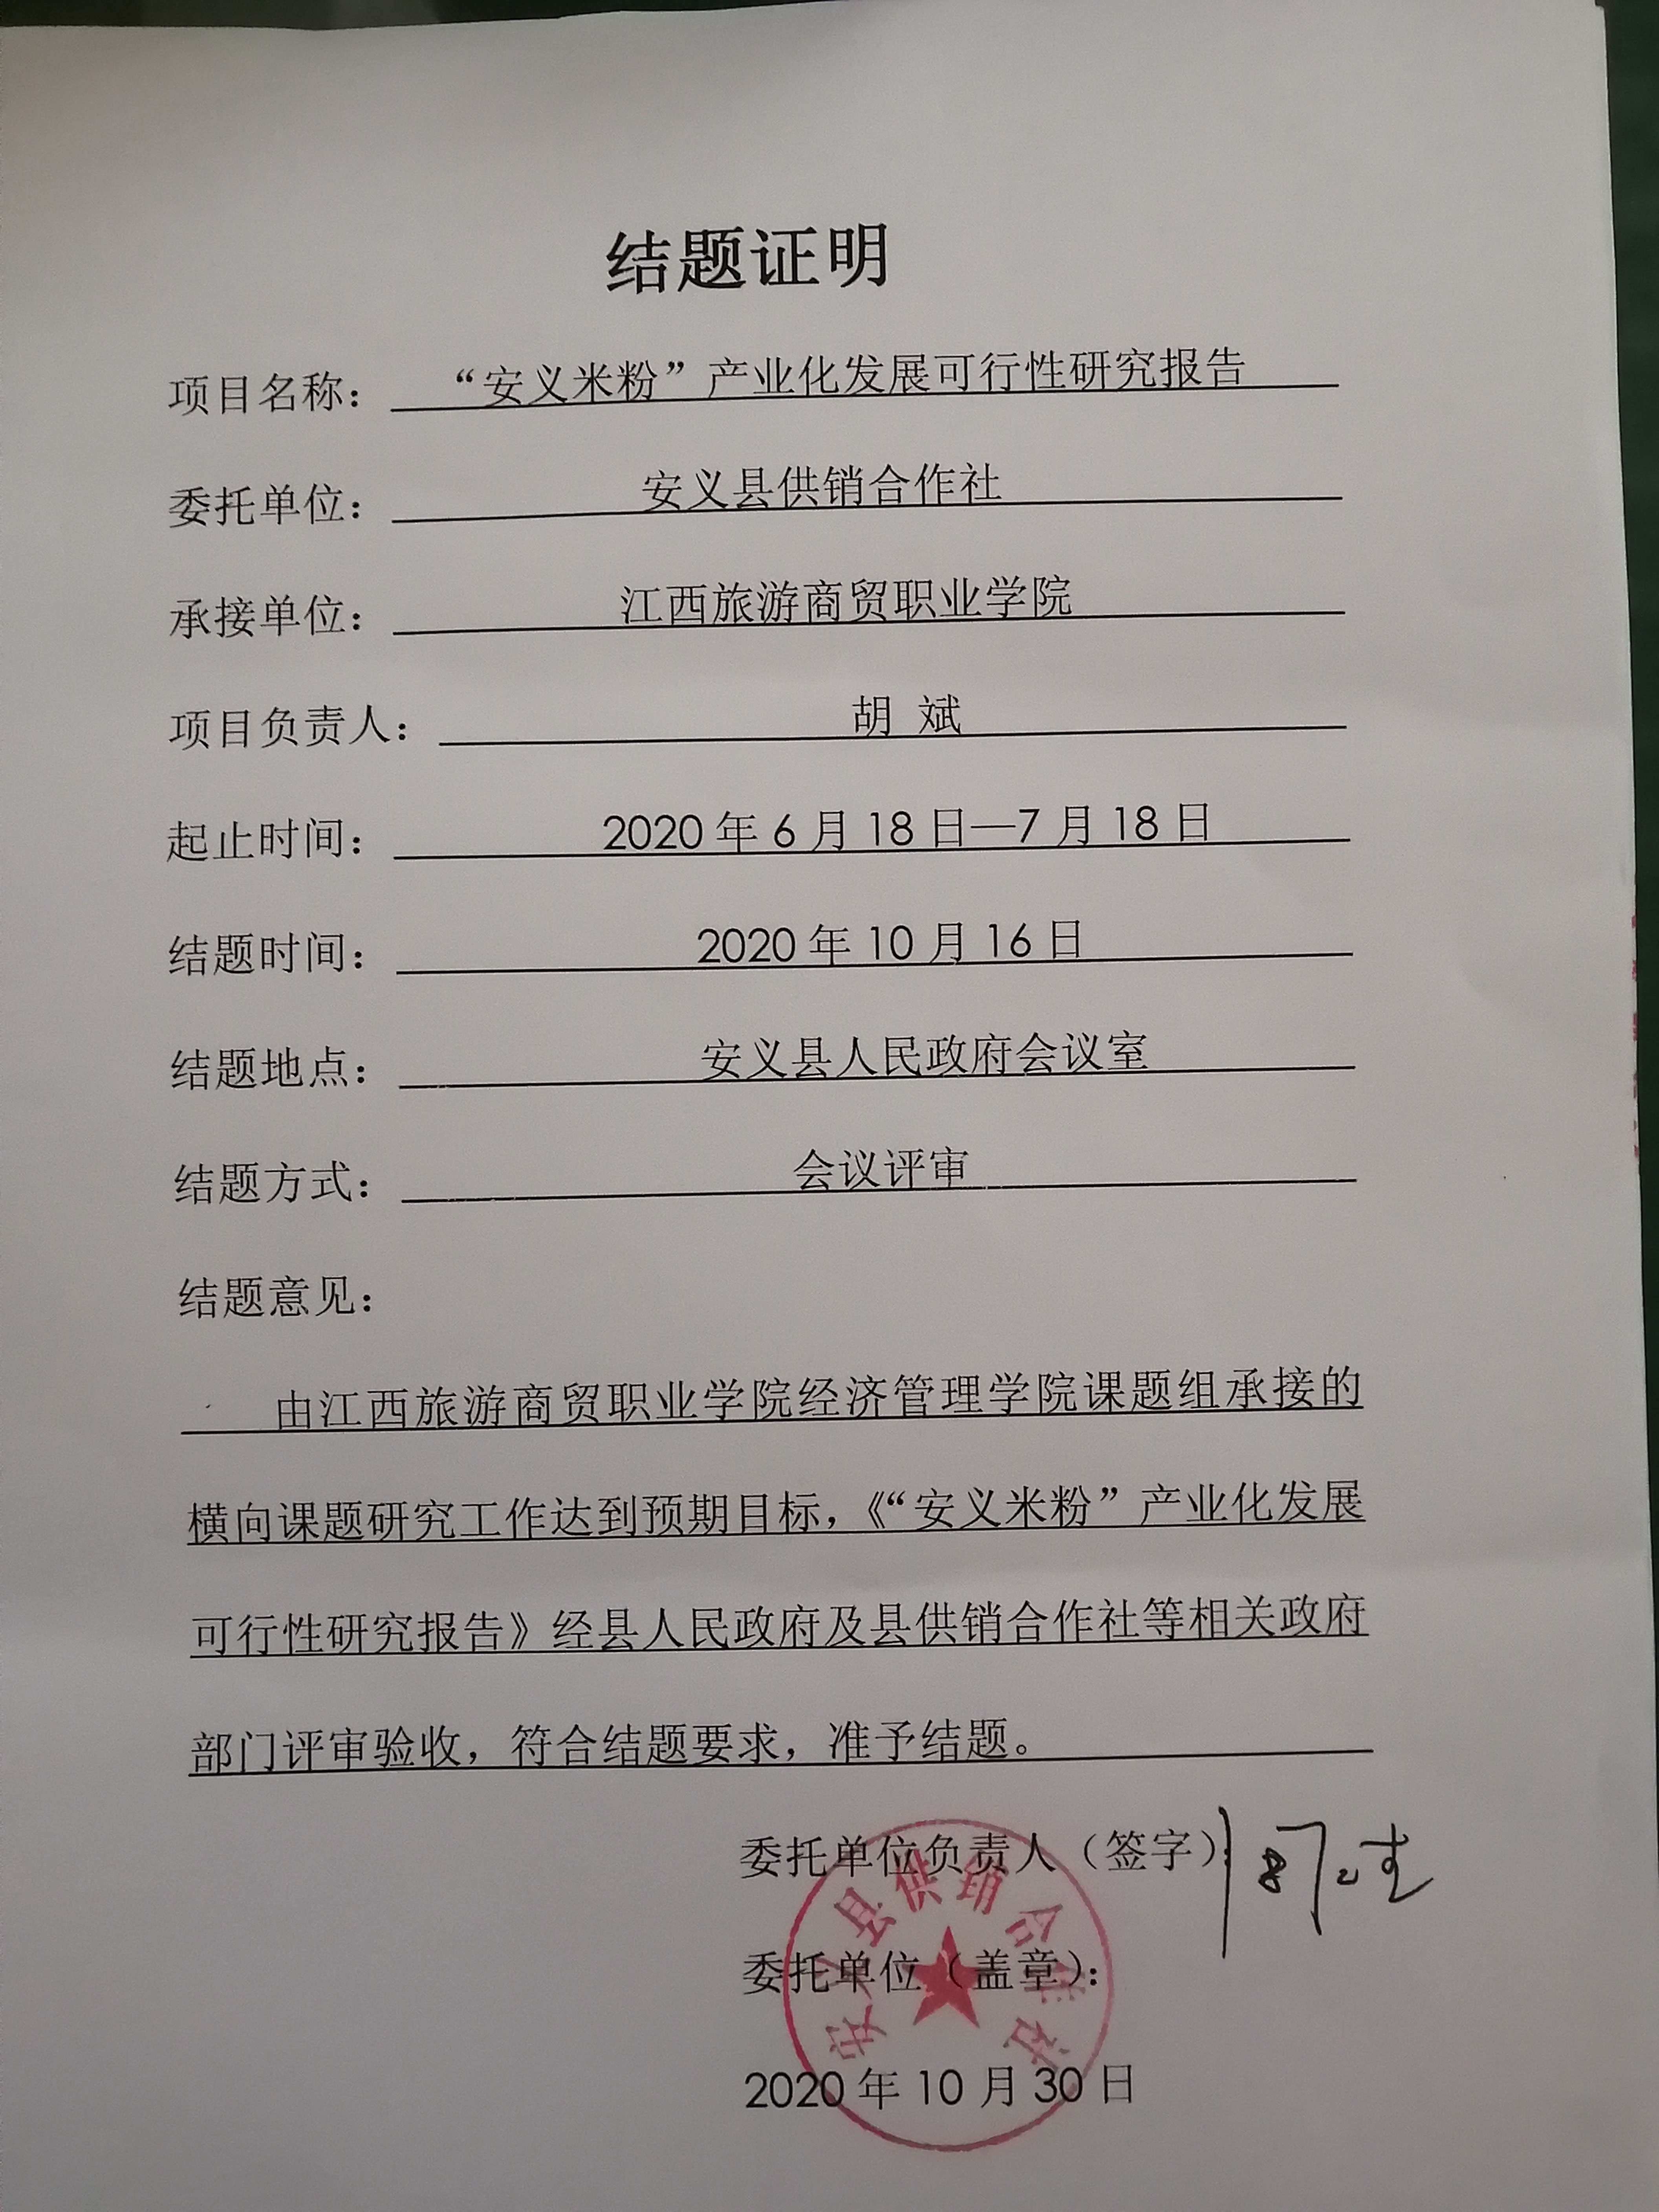 结题证明
项目名称： “安义米粉”产业化发展可行性研究报告
委托单位： 安义县供销合作社
承接单位： 江西旅游商贸职业学院
项目负责人： 胡 斌
起止时间： 2020年6月18日—7月18日
结题时间： 2020年10月16日
结题地点： 安义县人民政府会议室
结题方式： 会议评审
结题意见：
由江西旅游商贸职业学院经济管理学院课题组承接的
横向课题研究工作达到预期目标，《“安义米粉”产业化发展
可行性研究报告》经县人民政府及县供销合作社等相关政府
部门评审验收，符合结题要求，准予结题。
委托单位负责人（签字）：
安义县供销合作社
委托单位（盖章）：
2020年10月30日